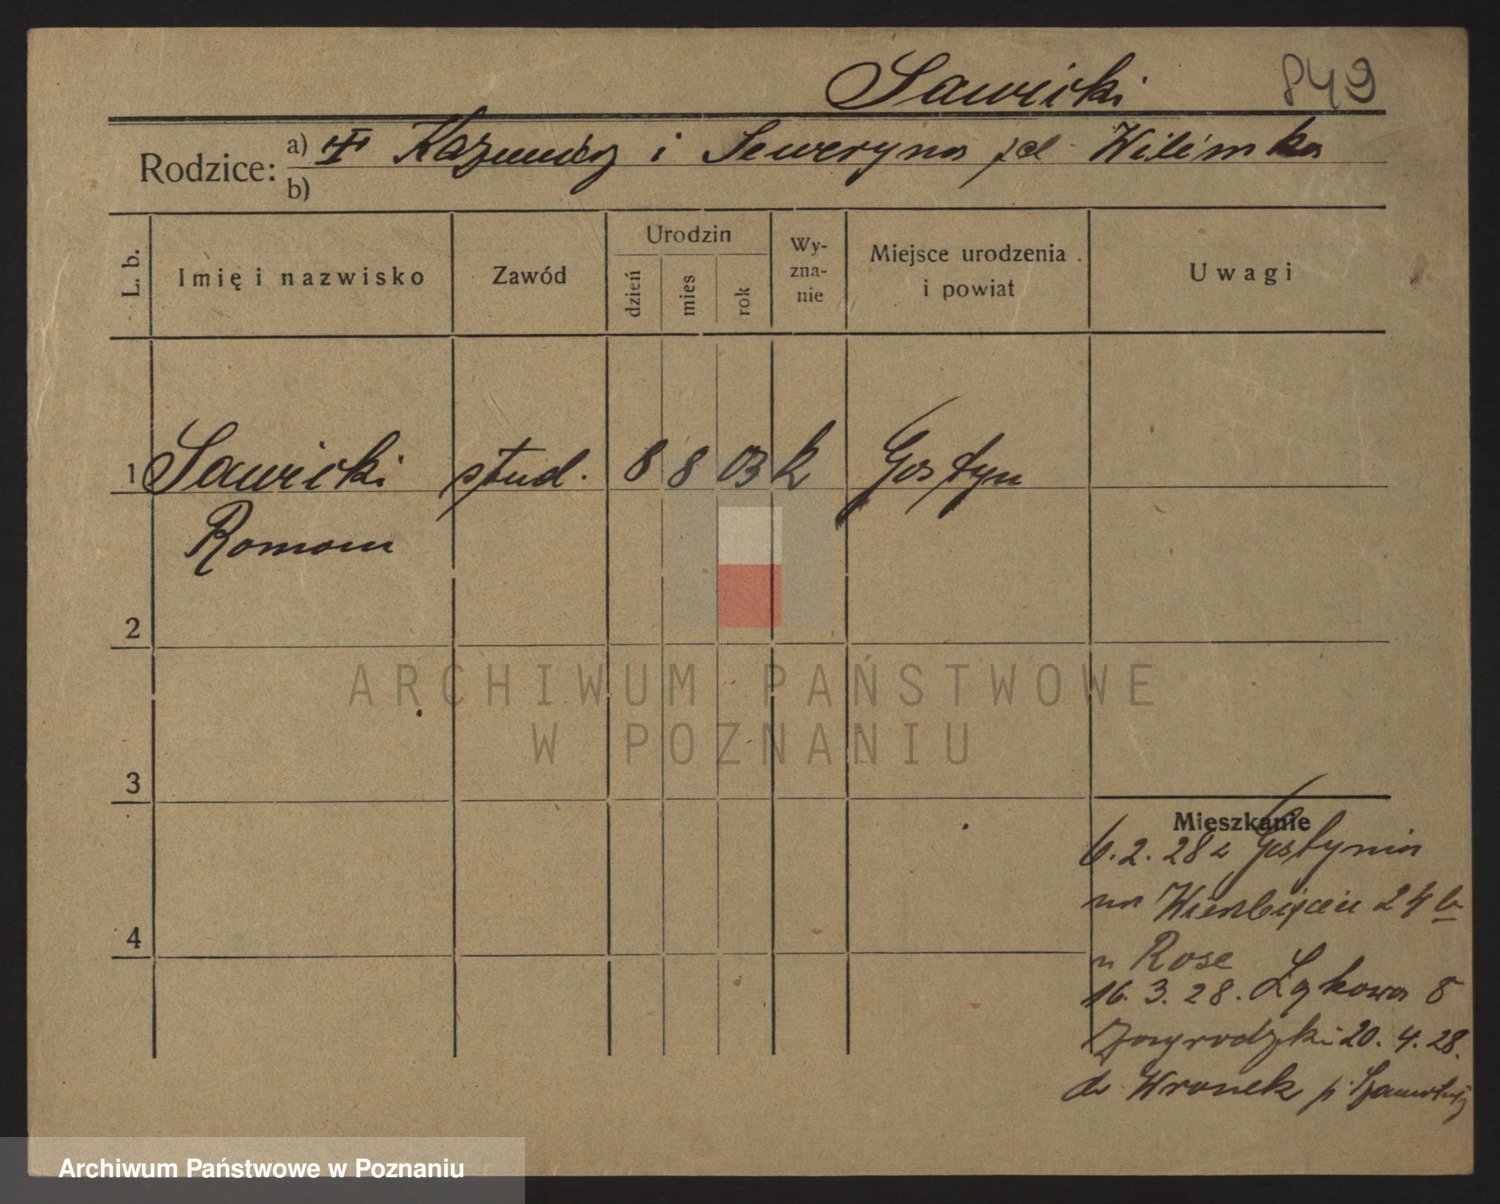 Sawicki 849
Rodzice: a) Kazimierz i Seweryna Wilimska
b)
L. b. Imię i nazwisko Zawód Urodzin dzień mies rok Wy-zna-nie Miejsce urodzenia i powiat Uwagi
1 Sawicki stud. 8 8 03 k Gostyn
Roman
2
ARCHIWUM PAŃSTWOWE
W POZNANIU
3
Mieszkanie
6.2.28 z Gostynia
na Wierzbięcice 24b
u Rose
16.3.28. Łąkowa 8
Zagrodzki 20.4.28.
do Wronek p. Szamotuły
4
Archiwum Państwowe w Poznaniu